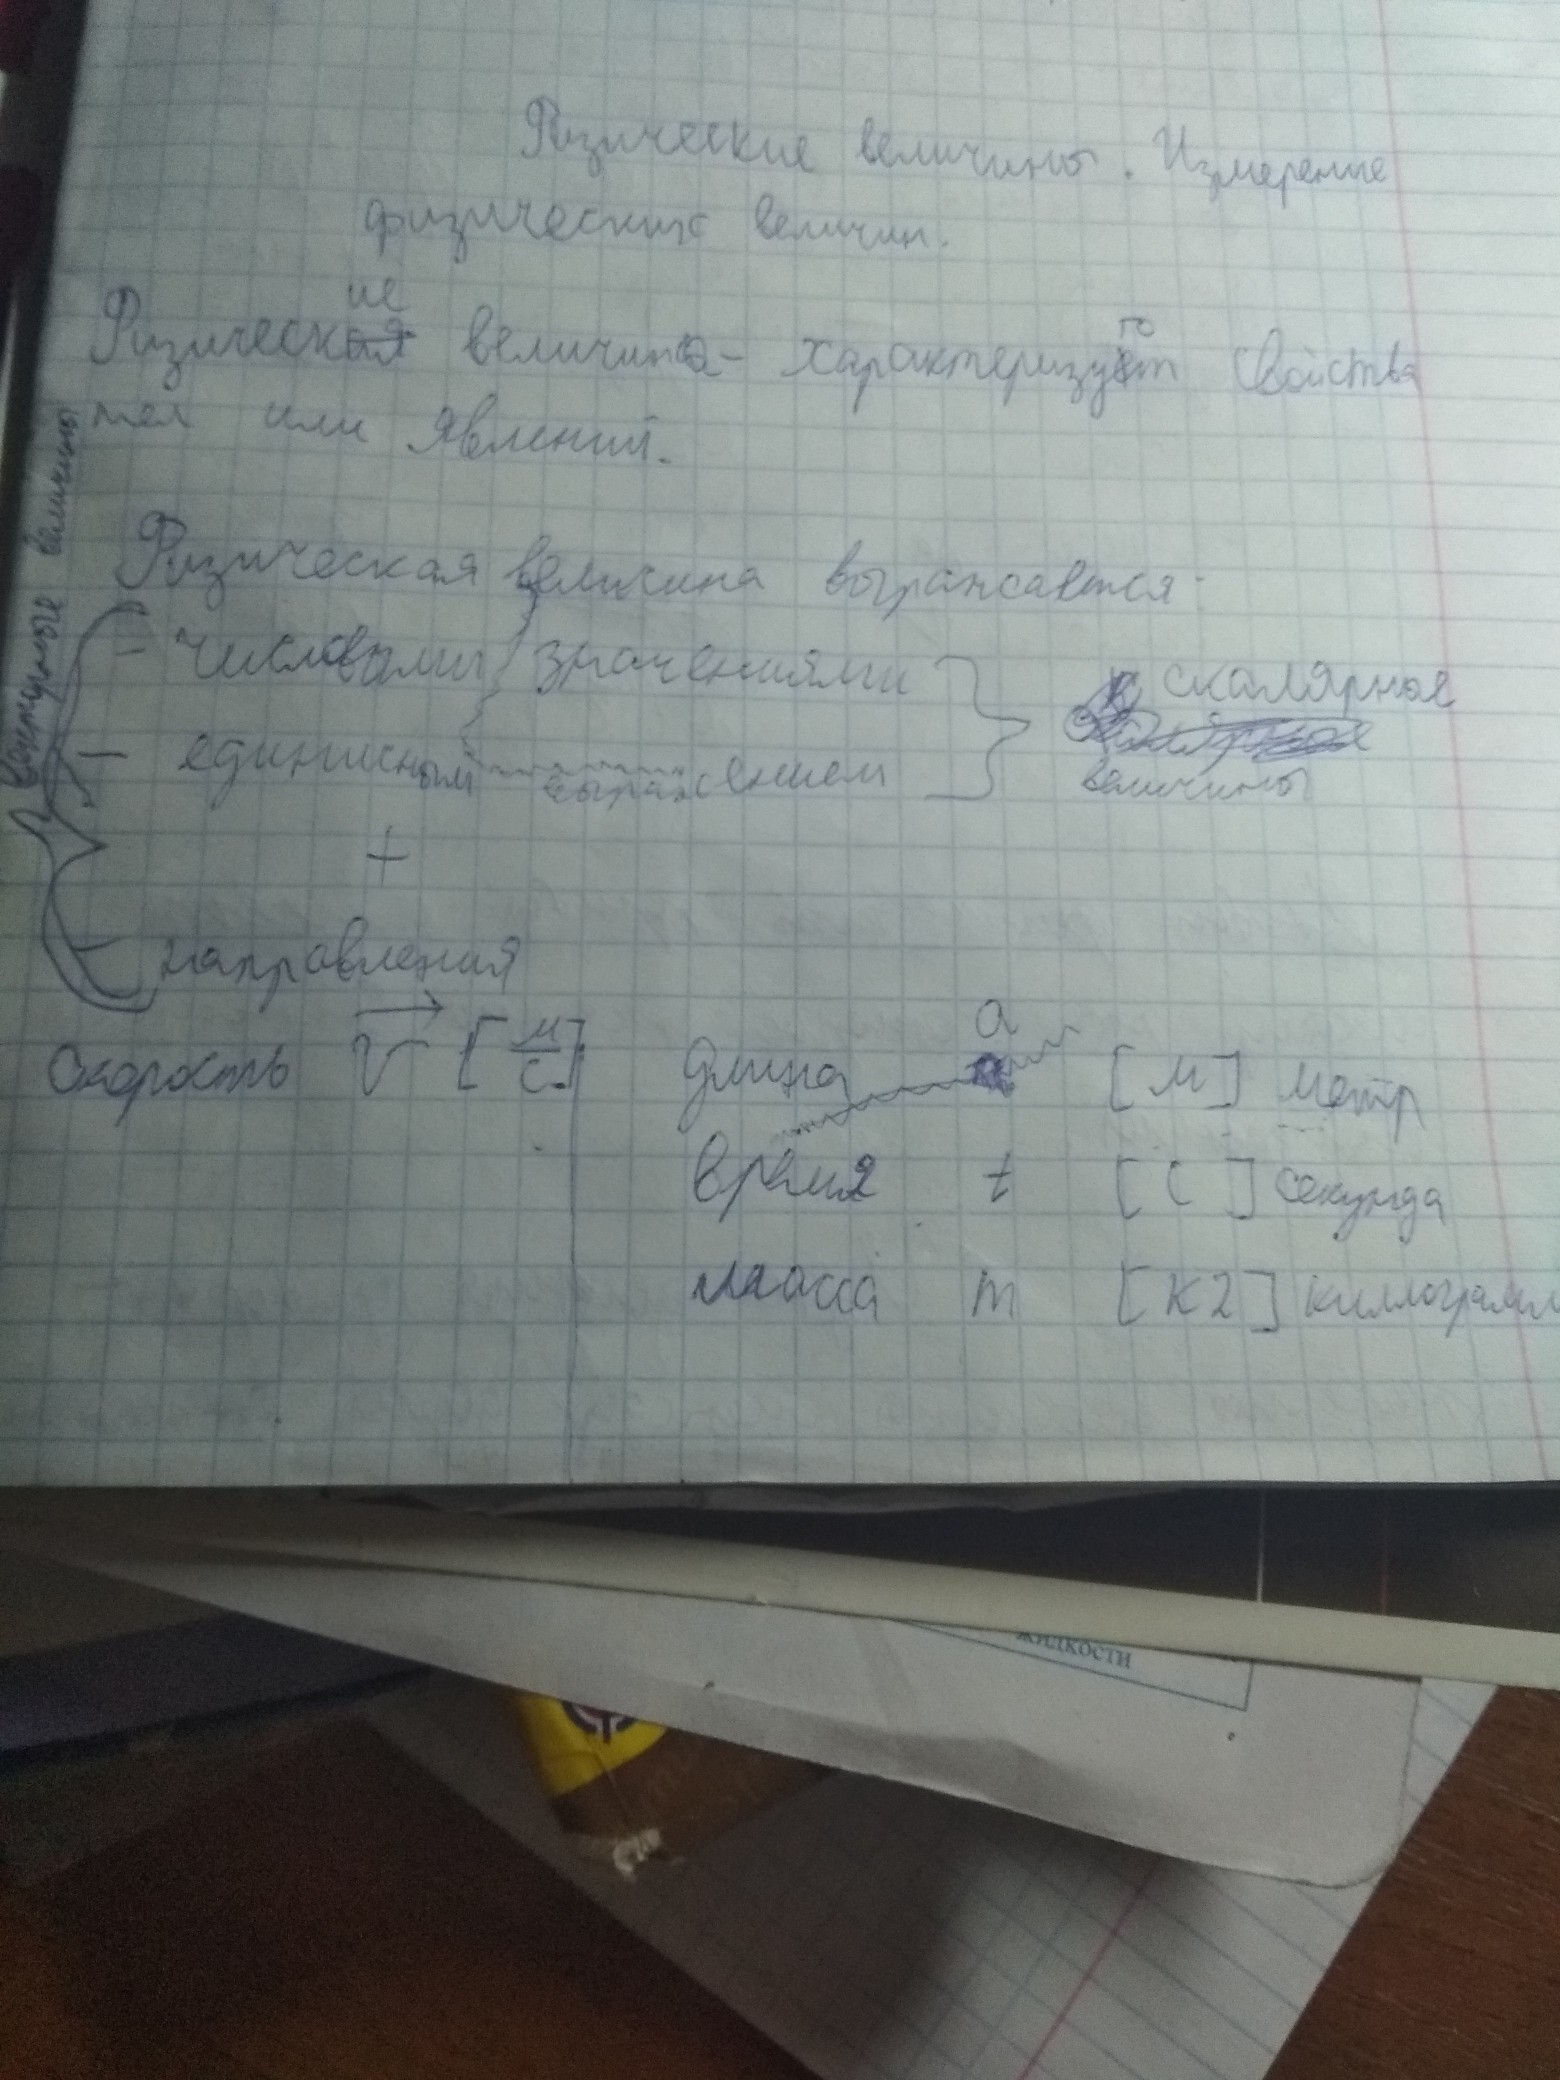 Физические величины. Измерение
физических величин.
ие
Физическая величина - характеризуют свойства
тел или явлений.
Физическая величина выражается:
- числовыми значениями
- единичным выражением
скалярные
величины
+
- направления
векторные величины
Скорость v [м/с]
длина a [м] метр
время t [с] секунда
масса m [кг] киллограмм
жидкости